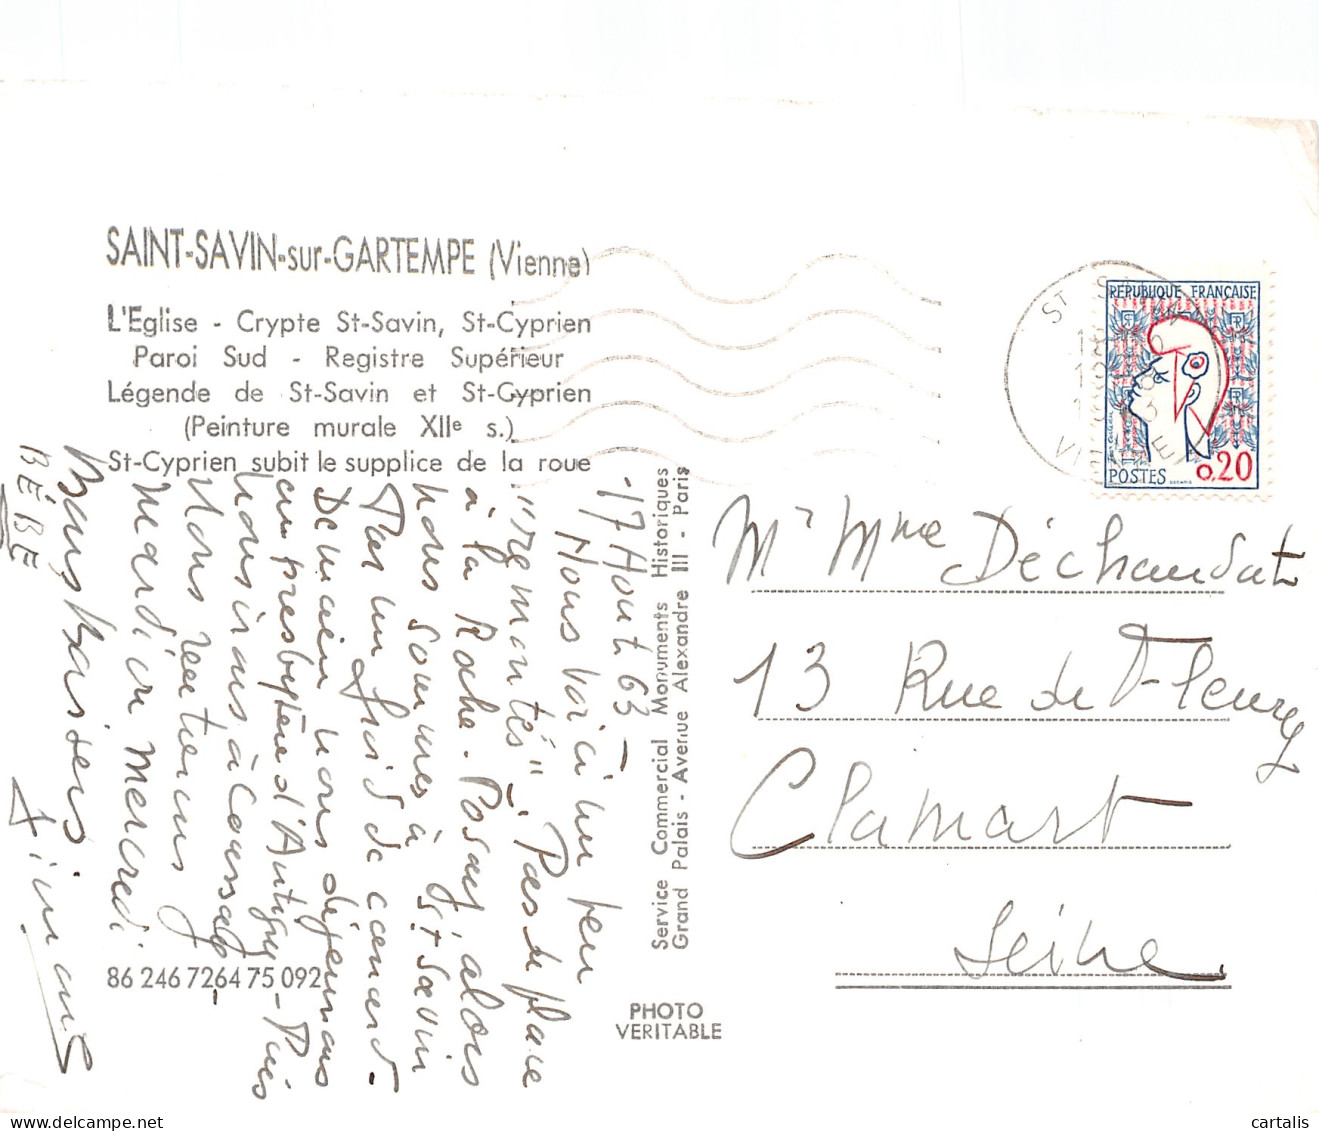 SAINT-SAVIN-sur-GARTEMPE (Vienne)
L'Eglise - Crypte St-Savin, St-Cyprien
Paroi Sud - Registre Supérieur
Légende de St-Savin et St-Cyprien
(Peinture murale XIIe s.)
St-Cyprien subit le supplice de la roue
17 Aout 63 -
Nous voici un peu
"remontés". Pas de place
à la Roche. Posay, alors
nous sommes à St Savin
Par un froid de canard -
Demain nous déjeunons
au presbytère d'Antigny - Puis
nous irons à Coussay -
Nous rentrerons
mardi ou mercredi
Bons baisers
BÉBE
86 246 7264 75 092
Service Commercial Monuments Historiques
Grand Palais - Avenue Alexandre III - Paris
PHOTO
VERITABLE
ST S
VIENNE
REPUBLIQUE FRANÇAISE
RF
POSTES
0,20
Mr Mme Déchaudat
13 Rue de Fleury
Clamart
Seine
cartalis